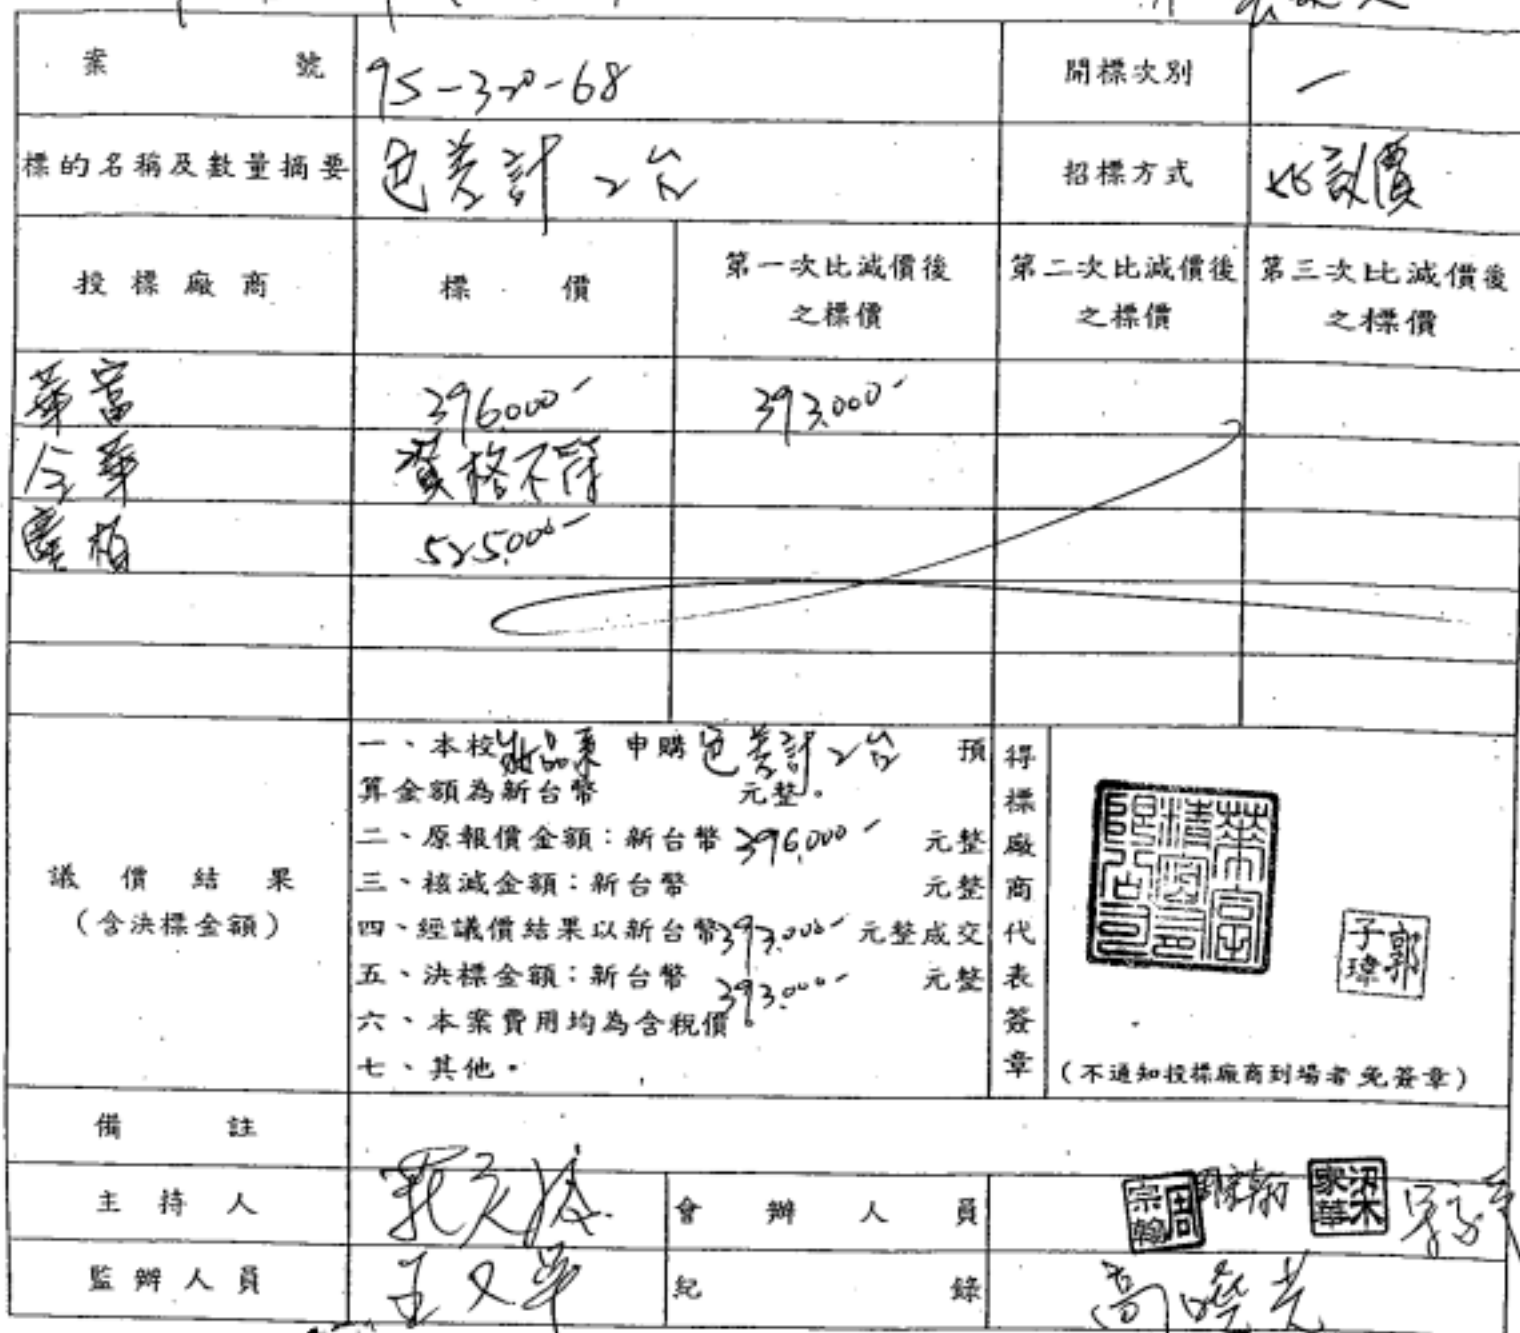 案號 95-320-68 開標次別 一
標的名稱及數量摘要 色差計 2台 招標方式 比議價
投標廠商 標價 第一次比減價後之標價 第二次比減價後之標價 第三次比減價後之標價
華富 396,000 393,000
今華 資格不符
525,000
議價結果
(含決標金額)
一、本校妝品系 申購 色差計 2台 預
算金額為新台幣 元整。
二、原報價金額：新台幣 396,000 元整
三、核減金額：新台幣 元整
四、經議價結果以新台幣 393,000 元整成交
五、決標金額：新台幣 393,000 元整
六、本案費用均為含稅價。
七、其他。
得標廠商代表簽章
郭子瑋
(不通知投標廠商到場者免簽章)
備註
主持人 會辦人員 周宗翰 梁家華
監辦人員 王又華 紀錄 高曉光